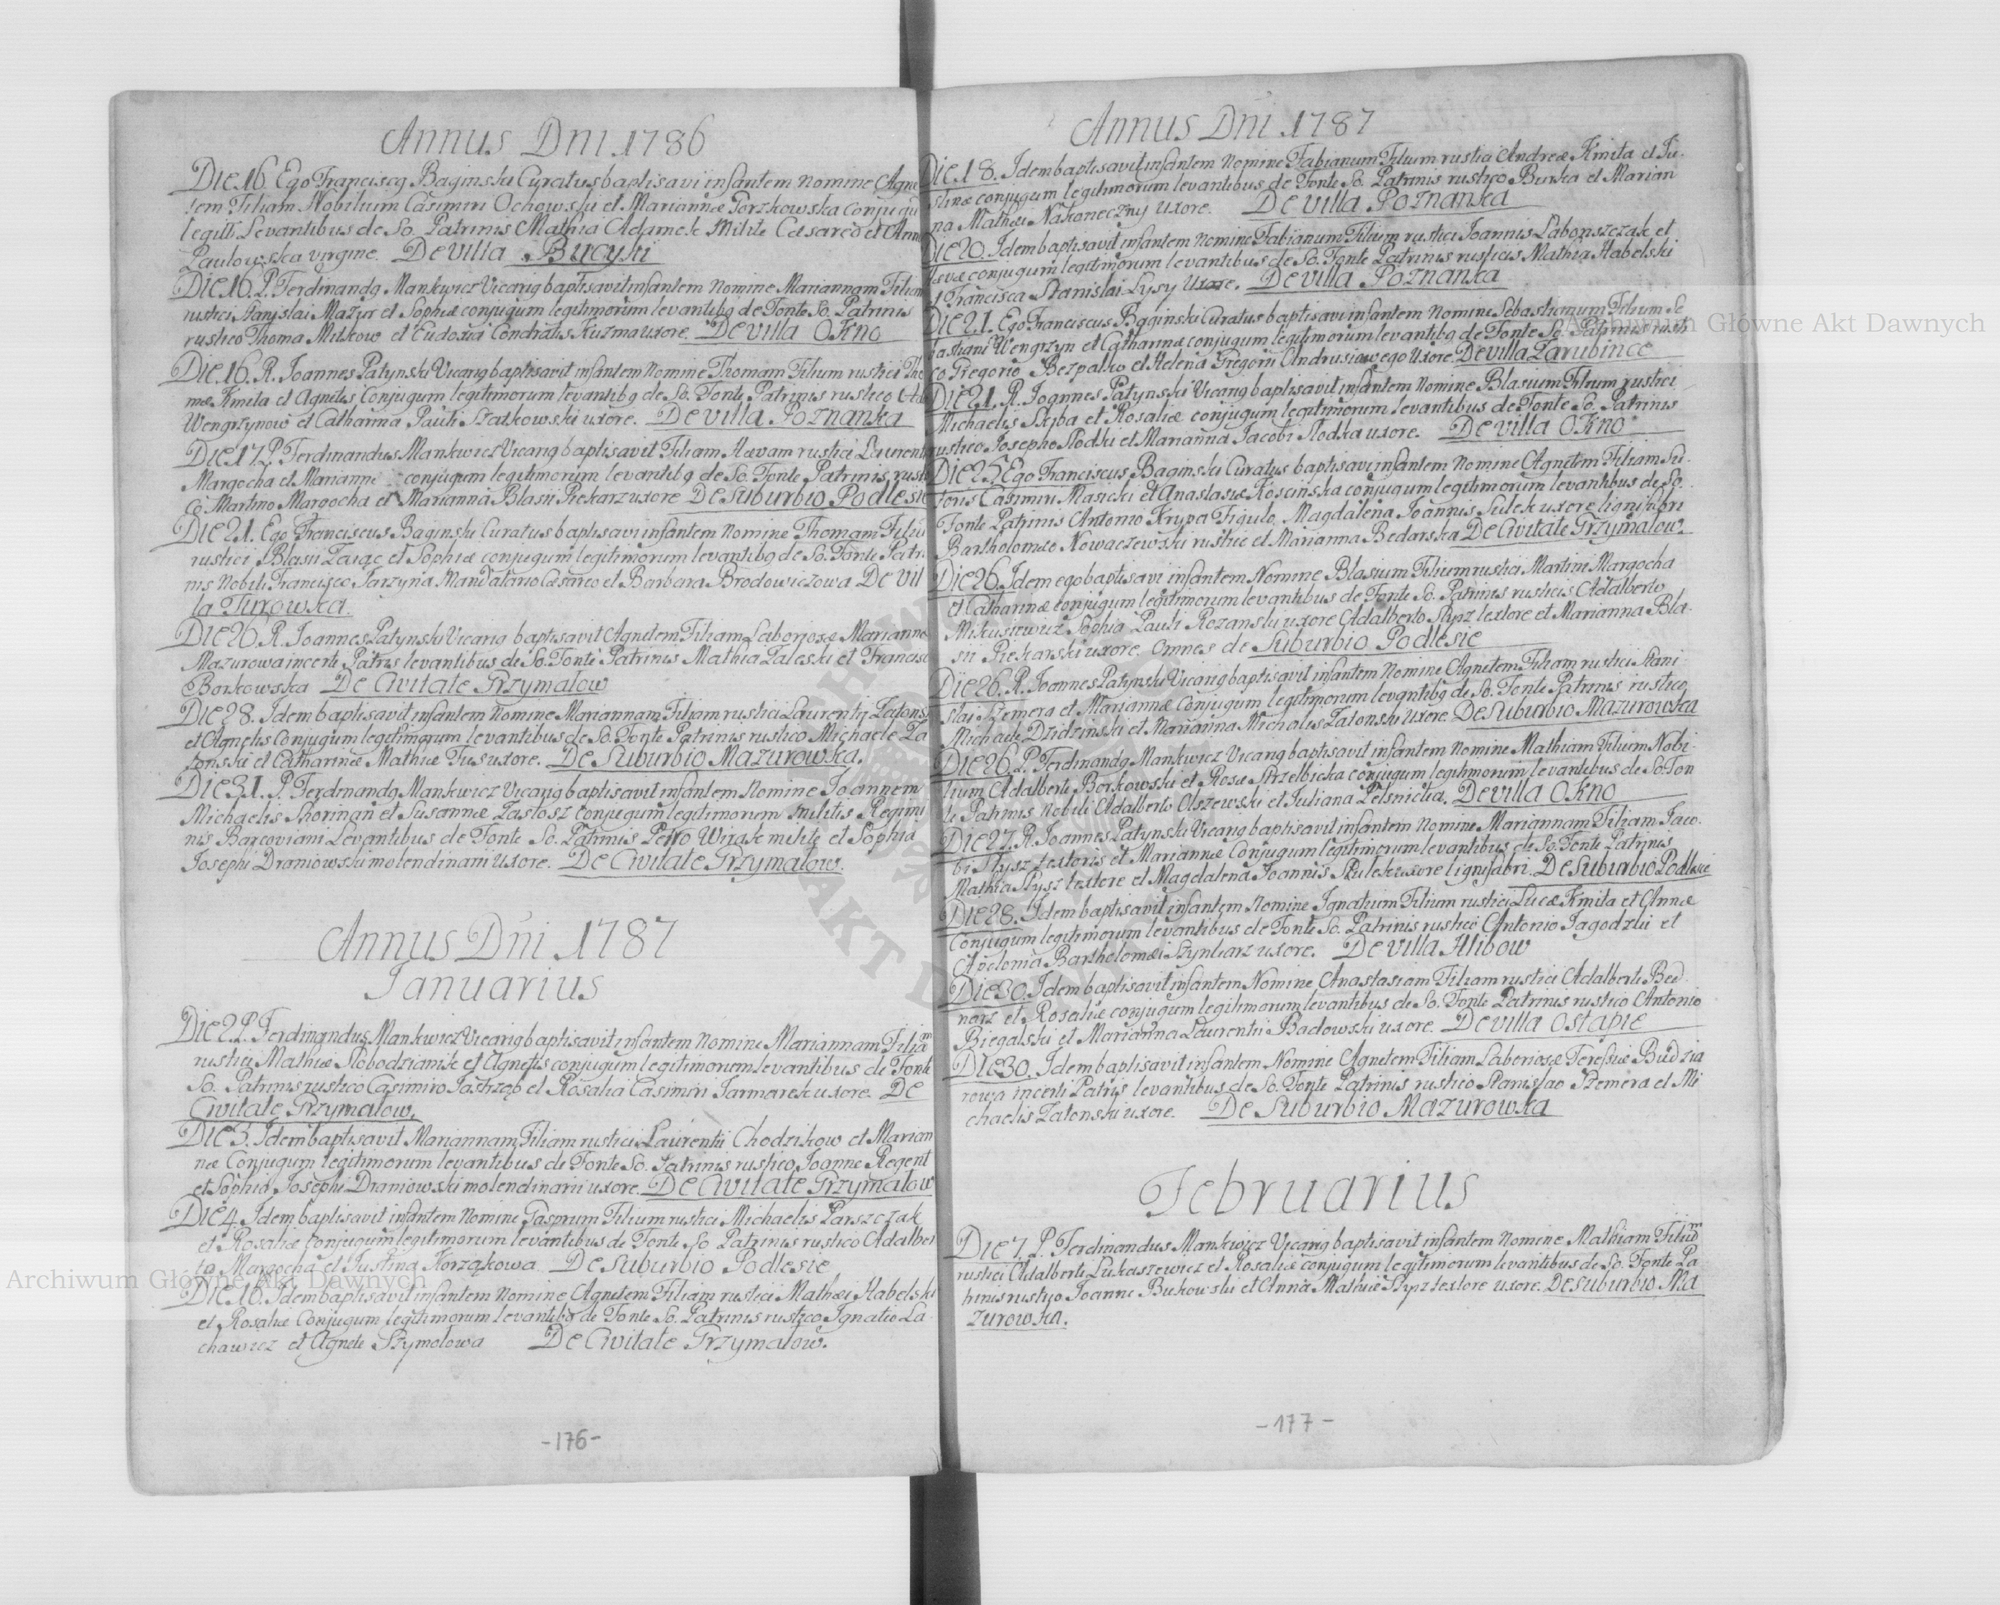 Annus Dni 1786
Die 16. Ego Franciscq Baginski Curatus baptisavi infantem nomine Agne
tem Filiam Nobilium Casimiri Ochowski et Mariannæ Porzkowska conjugu
legitt: Levantibus de So. Patrinis Mathia Adamek Milite Cæsareo et Anna
Pawlowska virgine. De Villa Bucyki
Die 16. P. Ferdinandq Mankwicz Vicariq baptisavit infantem Nomine Mariannam Filiam
rustici Stanyslai Mazur et Sophiæ conjugum legitimorum levantibq de Fonte So. Patrinis
rustico Thoma Mitkow et Eudoxia Condratis Kuzma uxore. De Villa Okno
Die 16. R. Joannes Patynski Vicariq baptisavit infantem Nomine Thomam Filium rustici Tho
mæ Kmita et Agnetis Conjugum legitimorum levantibq de So. Fonte Patrinis rustico
Wengrzynow et Catharina Pauli Szatkowski uxore. De Villa Poznanka
Die 17. P. Ferdinandus Mankwicz Vicariq baptisavit Filiam Hævam rustici Laurenti
Margocha et Marianne conjugum legitimorum levantibq de So. Fonte Patrinis rusti
co Martino Margocha et Marianna Blasii Piekarz uxore De Suburbio Podlesie
Die 21. Ego Franciscus Baginski Curatus baptisavi infantem nomine Thomam Filiu
rustici Blasii Zaiąc et Sophiæ conjugum legitimorum levantibq de So. Fonte Patri
nis Nobili Francisco Jarzyna Mandatario Cæsareo et Barbara Brodowiczowa De Vil
la Turowka.
Die 26. R. Joannes Patynski Vicariq baptisavit Agnetem Filiam Laboriosæ Marianne
Mazurowa incerti Patris levantibus de So. Fonte Patrinis Mathia Zaleski et Francisc
Borkowska De Civitate Grzymalow
Die 28. Idem baptisavit infantem Nomine Mariannam Filiam rustici Laurentij Zatons
et Agnetis Conjugum legitimorum levantibus de So. Fonte Patrinis rustico Michaele Za
tonski et Catharinæ Mathiæ Fus uxore. De Suburbio Mazurowka.
Die 31. P. Ferdinandq Mankwicz Vicariq baptisavit infantem Nomine Joannem
Michaelis Thoringan et Susannæ Zastosz conjugum legitimorum militis Regimi
nis Barcoviani Levantibus de Fonte So. Patrinis Petro Wirak milite et Sophia
Josephi Draniowski molendinari uxore. De Civitate Grzymalow.
Annus Dni 1787
Januarius
Die 2. P. Ferdinandus Mankwicz Vicariq baptisavit infantem nomine Mariannam Filiam
rustici Mathiæ Slobodzianik et Agnetis conjugum legitimorum levantibus de Fonte
So. Patrinis rustico Casimiro Jastrzęb et Rosalia Casimiri Jarmarek uxore. De
Civitate Grzymalow.
Die 3. Idem baptisavit Mariannam Filiam rustici Laurentii Chodzikow et Marian
næ Conjugum legitimorum levantibus de Fonte So. Patrinis rustico Joanne Regent
et Sophia Josephi Draniowski molendinarii uxore. De Civitate Grzymalow
Die 4. Idem baptisavit infantem Nomine Gasprum Filium rustici Michaelis Parszczak
et Rosaliæ conjugum legitimorum levantibus de Fonte So Patrinis rustico Adalber
to Margocha et Justina Korząkowa De Suburbio Podlesie
Die 16. Idem baptisavit infantem Nomine Agnetem Filiam rustici Mathæi Habelski
et Rosaliæ Conjugum legitimorum levantibq de Fonte So. Patrinis rustico Ignatio La
chawicz et Agnete Szymotowa De Civitate Grzymalow.
-176-
Annus Dni 1787
Die 18. Idem baptisavit infantem nomine Fabianum Filium rustici Andreæ Kmita et Ju
stinæ conjugum legitimorum levantibus de Fonte So. Patrinis rustico Burka et Marian
na Mathæi Nakoneczny uxore. De Villa Poznanka
Die 20. Idem baptisavit infantem nomine Fabianum Filium rustici Joannis Labonszczak et
Hævæ conjugum legitimorum levantibus de So. Fonte Patrinis rusticis Mathia Habelski
et Francisca Stanislai Lysy Uxore. De Villa Poznanka
Die 21. Ego Franciscus Baginski Curatus baptisavi infantem Nomine Sebastianum Filium Se
bastiani Wengrzyn et Catharinæ conjugum legitimorum levantibq de Fonte So. Patrinis rusti
co Gregorio Bezpalko et Helena Gregorii Andrusiowego Uxore. De Villa Zarubince
Die 21. R. Joannes Patynski Vicariq baptisavit infantem Nomine Blasium Filium rustici
Michaelis Skyba et Rosaliæ conjugum legitimorum levantibus de Fonte So. Patrinis
rustico Josepho Slodki et Marianna Jacobi Slodka uxore. De Villa Okno
Die 25. Ego Franciscus Baginski Curatus baptisavi infantem Nomine Agnetem Filiam Su
toris Casimiri Masicki et Anastasiæ Roscinska conjugum legitimorum levantibus de So.
Fonte Patrinis Antonio Kryper Figulo, Magdalena Joannis Sulek uxore lignifabri
Bartholomæo Nowaczewski rustice et Marianna Bedarska De Civitate Grzymalow.
Die 26. Idem ego baptisavi infantem Nomine Blasium Filium rustici Martini Margocha
et Catharinæ conjugum legitimorum levantibus de Fonte So. Patrinis rusticis Adalberto
Mikusiewicz Sophia Pauli Rozanski uxore Adalberto Slysz textore et Marianna Bla-
sii Piekarski uxore. Omnes de Suburbio Podlesie
Die 26. R. Joannes Patynski Vicariq baptisavit infantem Nomine Agnetem Filiam rustici Stani
slai Szemera et Mariannæ Conjugum legitimorum levantibq de So. Fonte Patrinis rustico
Michaele Dzidzinski et Marianna Nicholis Zatonski uxore. De Suburbio Mazurowka
Die 26. P. Ferdinandq Mankwicz Vicariq baptisavit infantem Nomine Mathiam Filium Nobi-
lium Adalberti Borkowski et Rosæ Strzelbicka conjugum legitimorum levantibus de So. Fon
te Patrinis nobili Adalberto Olszewski et Juliana Letsnicka. De Villa Okno
Die 27. R. Joannes Patynski Vicariq baptisavit infantem Nomine Mariannam Filiam Jaco-
bi Slysz textoris et Mariannæ Conjugum legitimorum levantibus de So. Fonte Patrinis
Mathia Slysz textore et Magdalena Joannis Szulek uxore lignifabri. De Suburbio Podlesie
Die 28. Idem baptisavit infantem Nomine Ignatium Filium rustici Lucæ Kmita et Annæ
Conjugum legitimorum levantibus de Fonte So. Patrinis rustico Antonio Jagodzki et
Apolonia Bartholomæi Szynkarz uxore. De Villa Hlibow
Die 30. Idem baptisavit infantem Nomine Anastasiam Filiam rustici Adalberti Bed
narz et Rosaliæ conjugum legitimorum levantibus de So. Fonte Patrinis rustico Antonio
Biegalski et Marianna Laurentii Badowski uxore. De Villa Ostapie
Die 30. Idem baptisavit infantem Nomine Agnetem Filiam Laboriosæ Teressiæ Budzia
rowa incerti Patris levantibus de So. Fonte Patrinis rustico Stanislao Szemera et Mi
chaelis Zatonski uxore. De Suburbio Mazurowka
Februarius
Die 7. P. Ferdinandus Mankwicz Vicariq baptisavit infantem nomine Mathiam Filium
rustici Adalberti Lukaszewicz et Rosaliæ conjugum legitimorum levantibus de So. Fonte Pa
trinis rustico Joanne Bukowski et Anna Mathiæ Slysz textore uxore. De Suburbio Ma
zurowka.
-177-
Archiwum Główne Akt Dawnych
Archiwum Główne Akt Dawnych